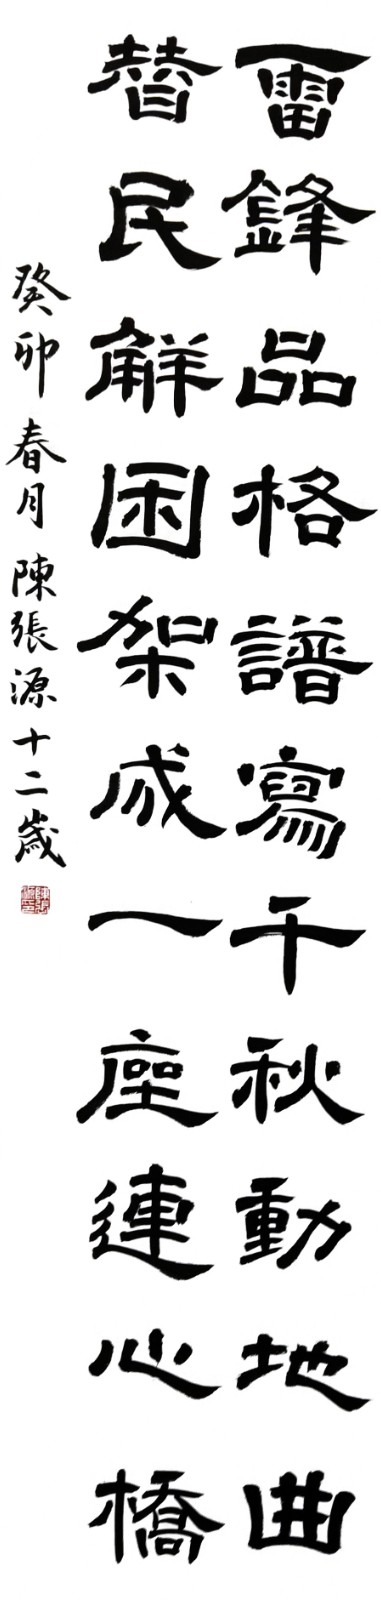 雷鋒品格譜寫千秋動地曲
替民解困架成一座連心橋
癸卯春月陳張源十二歲